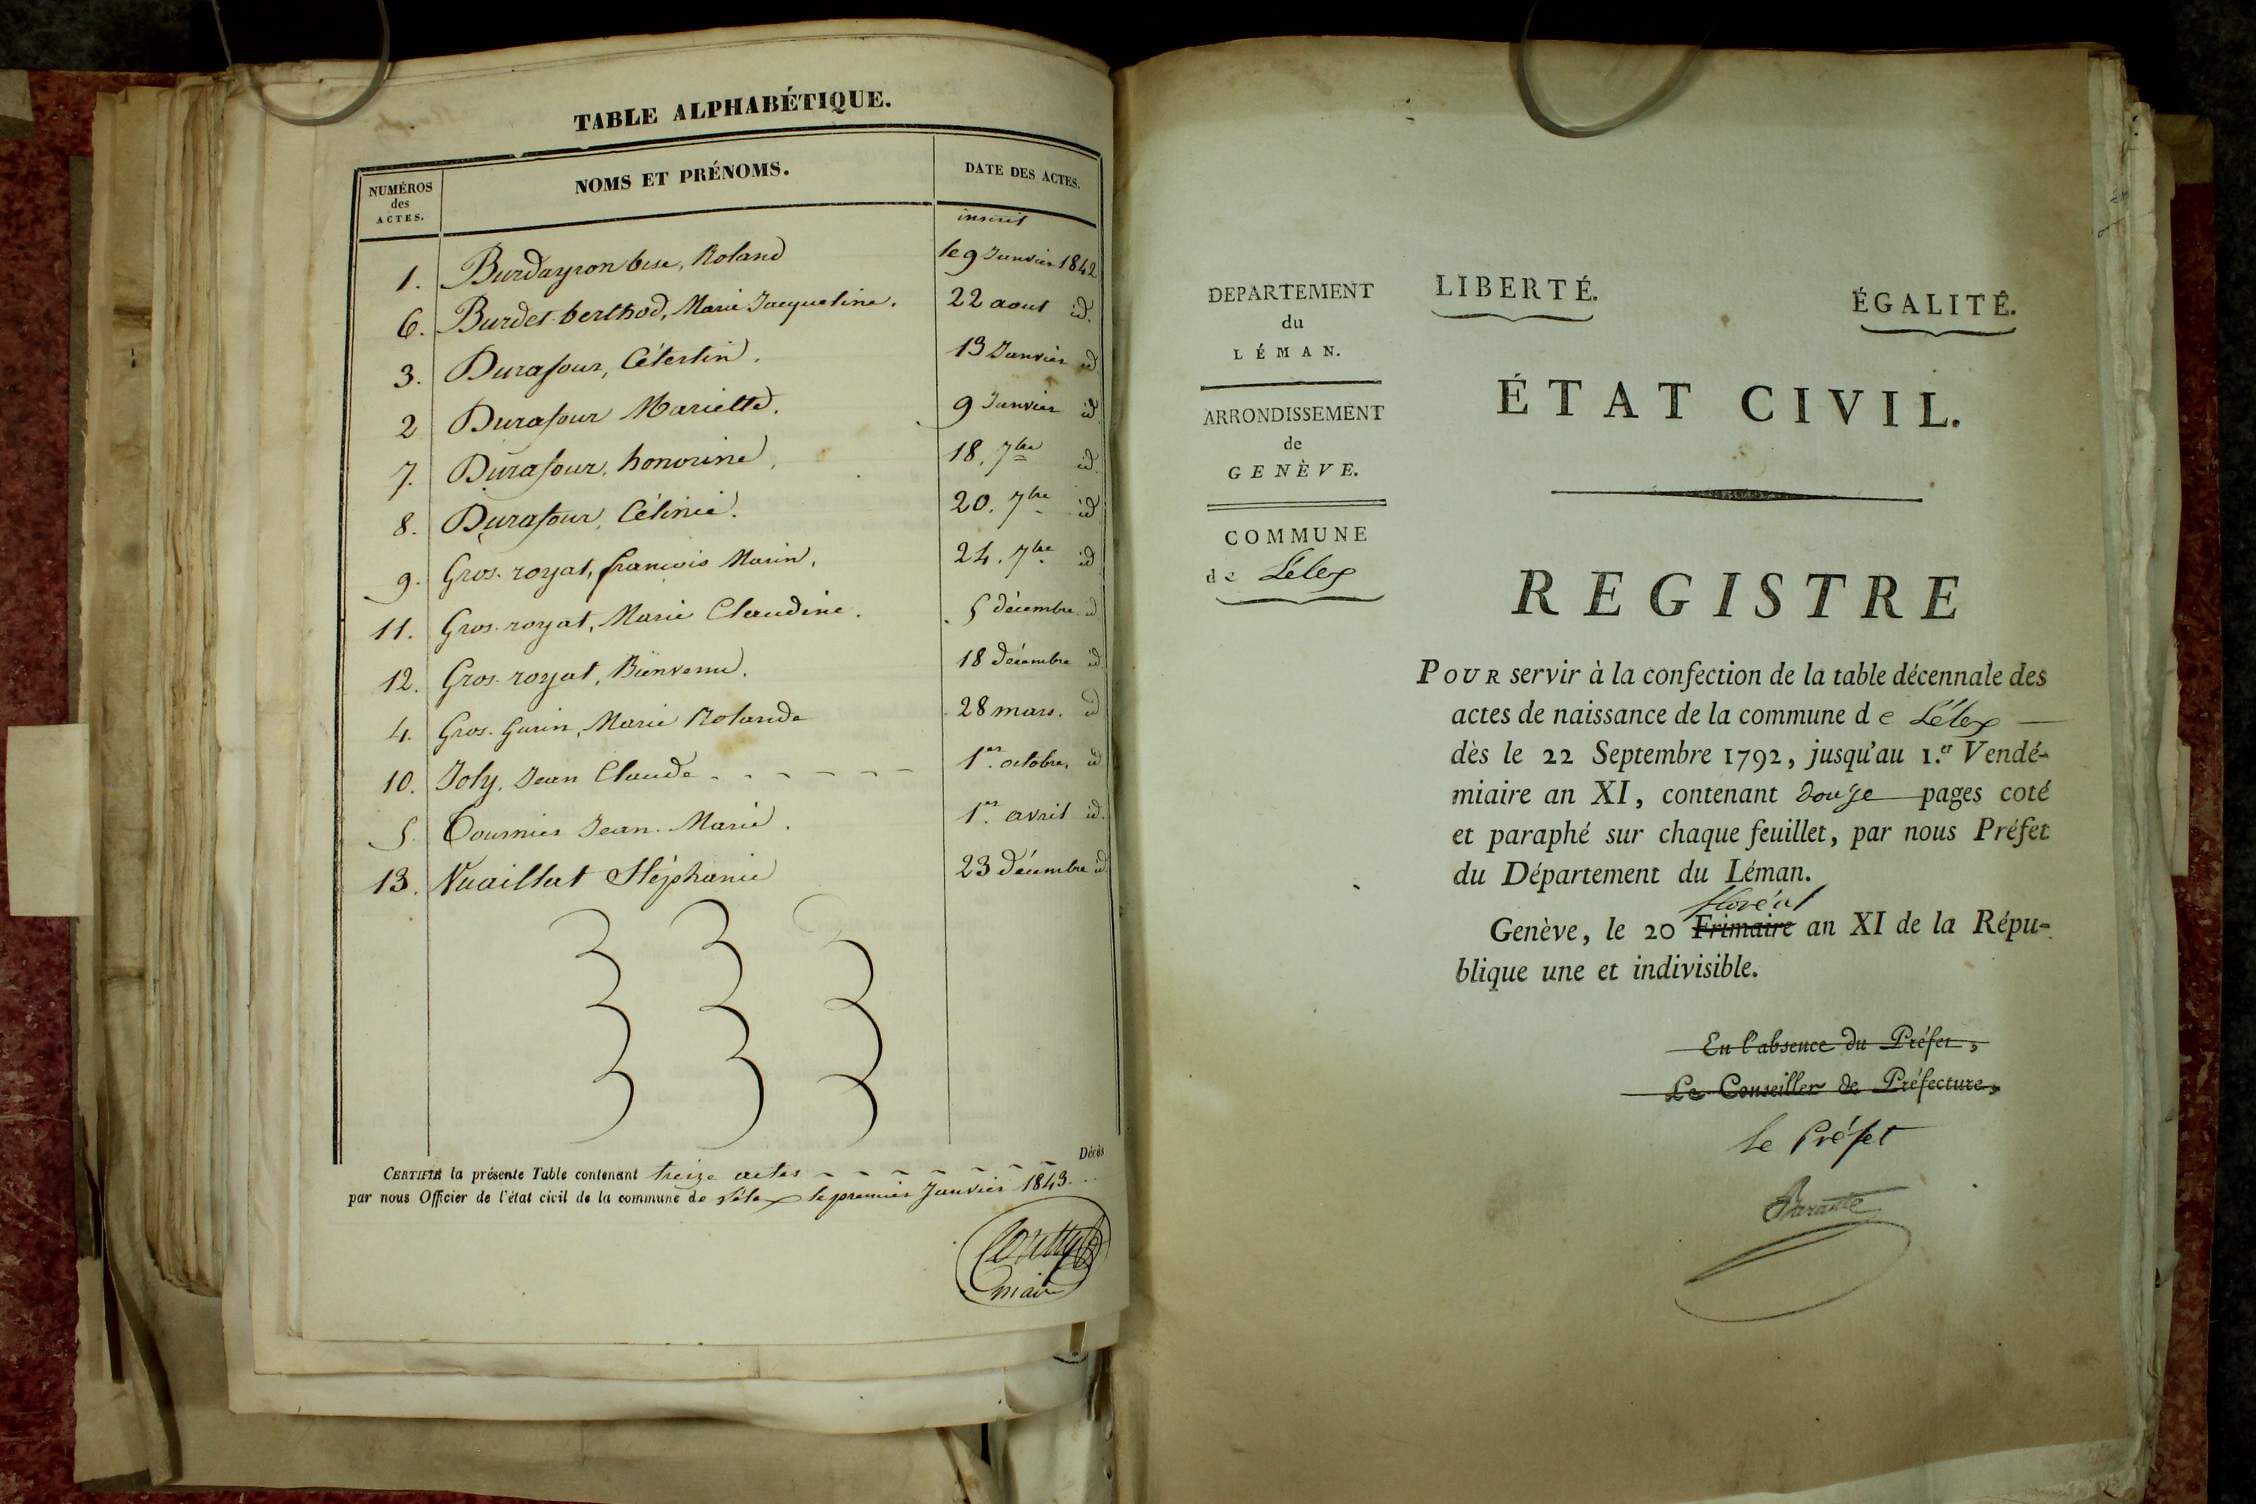 TABLE ALPHABÉTIQUE.
NUMÉROS
des
ACTES.
NOMS ET PRÉNOMS.
DATE DES ACTES.
inscrit
1. Burdayron bise, Roland le 9 Janvier 1842
6. Burdet berthod, Marie Jacqueline. 22 aout id.
3. Durafour, Célestin. 13 Janvier id
2 Durafour Mariette. 9 Janvier id
7. Durafour, honorine, 18. 7bre id.
8. Durafour, Célinie. 20. 7bre id
9. Gros. royat, françois Marin, 24. 7bre id
11. Gros. royat, Marie Claudine. 5 décembre. id
12. Gros. royat, Bienvenu. 18 décembre id
4. Gros. Gurin, Marie Rolande 28 mars. id
10. Joly, Jean Claude 1er. octobre, id.
5. Tournier Jean. Marie. 1er. avril id.
13. Vuaillat Stéphanie 23 décembre id
Décès
CERTIFIÉ la présente Table contenant treize actes
par nous Officier de l'état civil de la commune de Lélex le premier Janvier 1843.
maire
DEPARTEMENT
du
LÉMAN.
ARRONDISSEMENT
de
GENÈVE.
COMMUNE
de Lélex
LIBERTÉ. ÉGALITÉ.
ÉTAT CIVIL.
REGISTRE
POUR servir à la confection de la table décennale des
actes de naissance de la commune de Lélex
dès le 22 Septembre 1792, jusqu'au 1.er Vendé-
miaire an XI, contenant douze pages coté
et paraphé sur chaque feuillet, par nous Préfet
du Département du Léman.
floréal
Genève, le 20 Frimaire an XI de la Répu-
blique une et indivisible.
En l'absence du Préfet,
Le Conseiller de Préfecture,
le Préfet
Barante